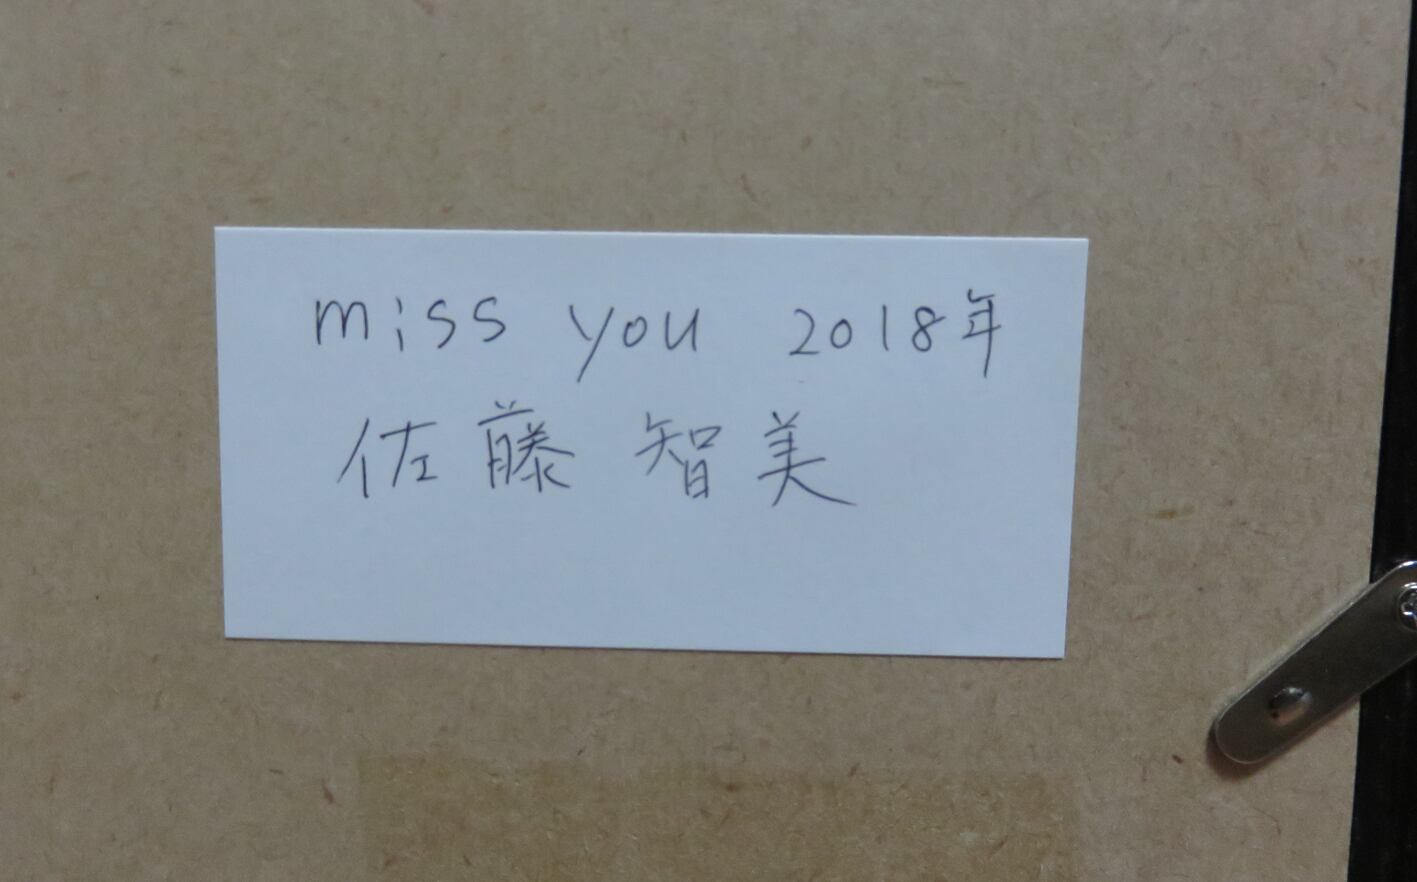 miss you 2018年
佐藤 智美